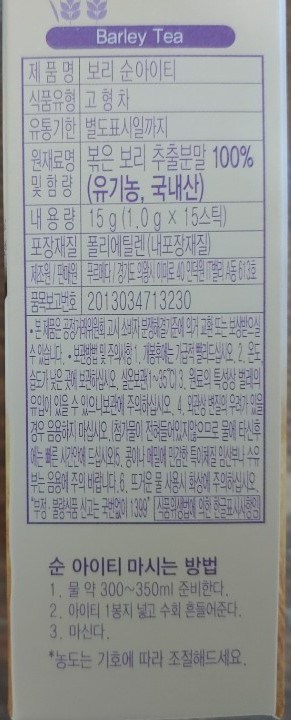 Barley Tea
제 품 명 보리 순아이티
식품유형 고 형 차
유통기한 별도표시일까지
원재료명 볶은 보리 추출분말 100%
및 함 량 (유기농, 국내산)
내 용 량 15 g (1.0 g × 15스틱)
포장재질 폴리에틸렌(내포장재질)
제조원 / 판매원 푸르메다 / 경기도 의왕시 이미로 40 인덕원 IT밸리 A동 613호
품목보고번호 2013034713230
•본 제품은 공정거래위원회 고시 소비자 분쟁해결기준에 의거 교환 또는 보상받으실
수 있습니다. •보관방법 및 주의사항 1. 개봉후에는 가급적 빨리드십시오. 2. 온도,
습도가 낮은 곳에 보관하십시오. 실온보관(1~35℃) 3. 원료의 특성상 벌레의
유입이 있을 수 있으니 보관에 주의하십시오. 4. 외관상 변질의 우려가 있을
경우 음용하지 마십시오. (첨가물이 전혀들어있지않으므로 물에 타신후
에는 빠른 시간안에 드십시오)5. 콩이나 메밀에 민감한 특이체질 임산부나 수유
부는 음용에 주의 바랍니다. 6. 뜨거운 물 사용시 화상에 주의하십시오.
"부정·불량식품 신고는 국번없이 1399" 식품위생법에 의한 한글표시사항임
순 아이티 마시는 방법
1. 물 약 300~350ml 준비한다.
2. 아이티 1봉지 넣고 수회 흔들어준다.
3. 마신다.
*농도는 기호에 따라 조절해드세요.